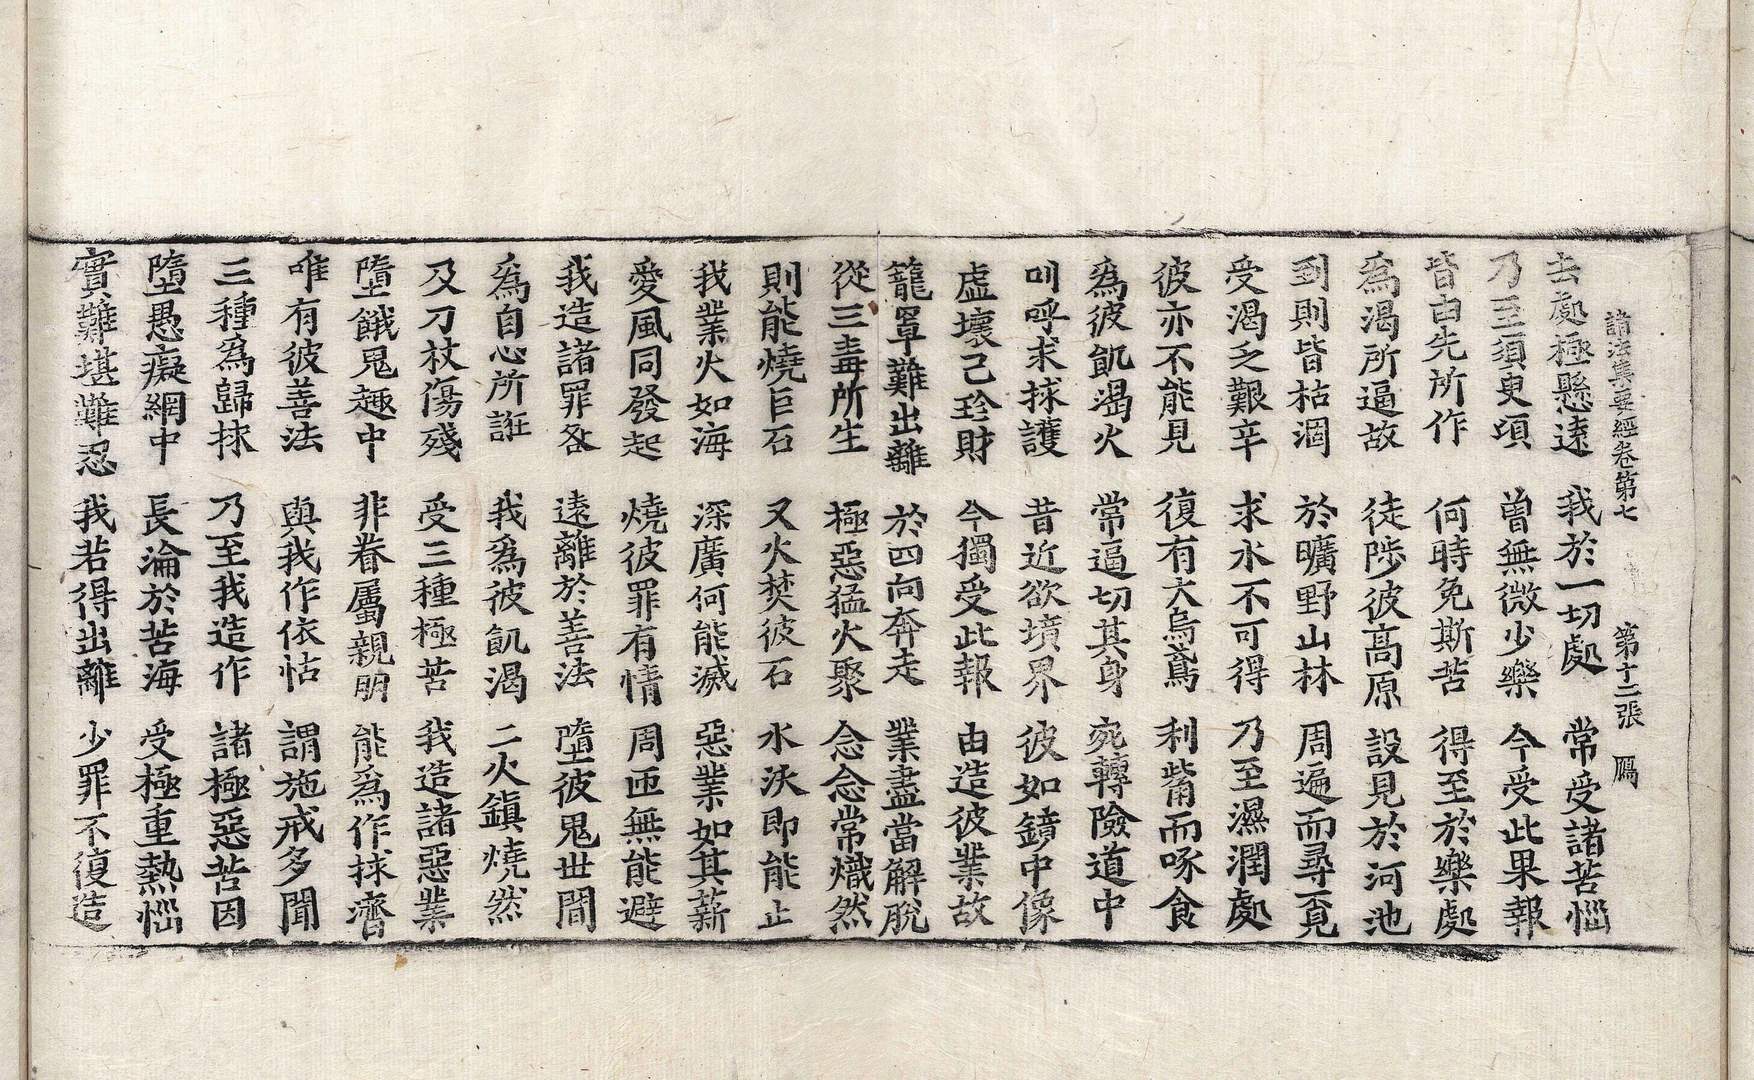 諸法集要經卷第七 第十二張 鴈
去處極懸遠 我於一切處 常受諸苦惱
乃至須臾頃 曾無微少樂 今受此果報
皆由先所作 何時免斯苦 得至於樂處
爲渴所逼故 徒陟彼高原 設見於河池
到則皆枯涸 於曠野山林 周遍而尋覔
受渴乏艱辛 求水不可得 乃至濕潤處
彼亦不能見 復有大烏鳶 利觜而啄食
爲彼飢渴火 常逼切其身 宛轉險道中
叫呼求救護 昔近欲境界 彼如鏡中像
虛壞己珍財 今獨受此報 由造彼業故
籠罩難出離 於四向奔走 業盡當解脫
從三毒所生 極惡猛火聚 念念常熾然
則能燒巨石 又火焚彼石 水沃即能止
我業火如海 深廣何能滅 惡業如其薪
愛風同發起 燒彼罪有情 周匝無能避
我造諸罪咎 遠離於善法 墮彼鬼世間
爲自心所誑 我爲彼飢渴 二火鎭燒然
及刀杖傷殘 受三種極苦 我造諸惡業
墮餓鬼趣中 非眷屬親朋 能爲作救濟
唯有彼善法 與我作依怙 謂施戒多聞
三種爲歸救 乃至我造作 諸極惡苦因
墮愚癡網中 長淪於苦海 受極重熱惱
實難堪難忍 我若得出離 少罪不復造